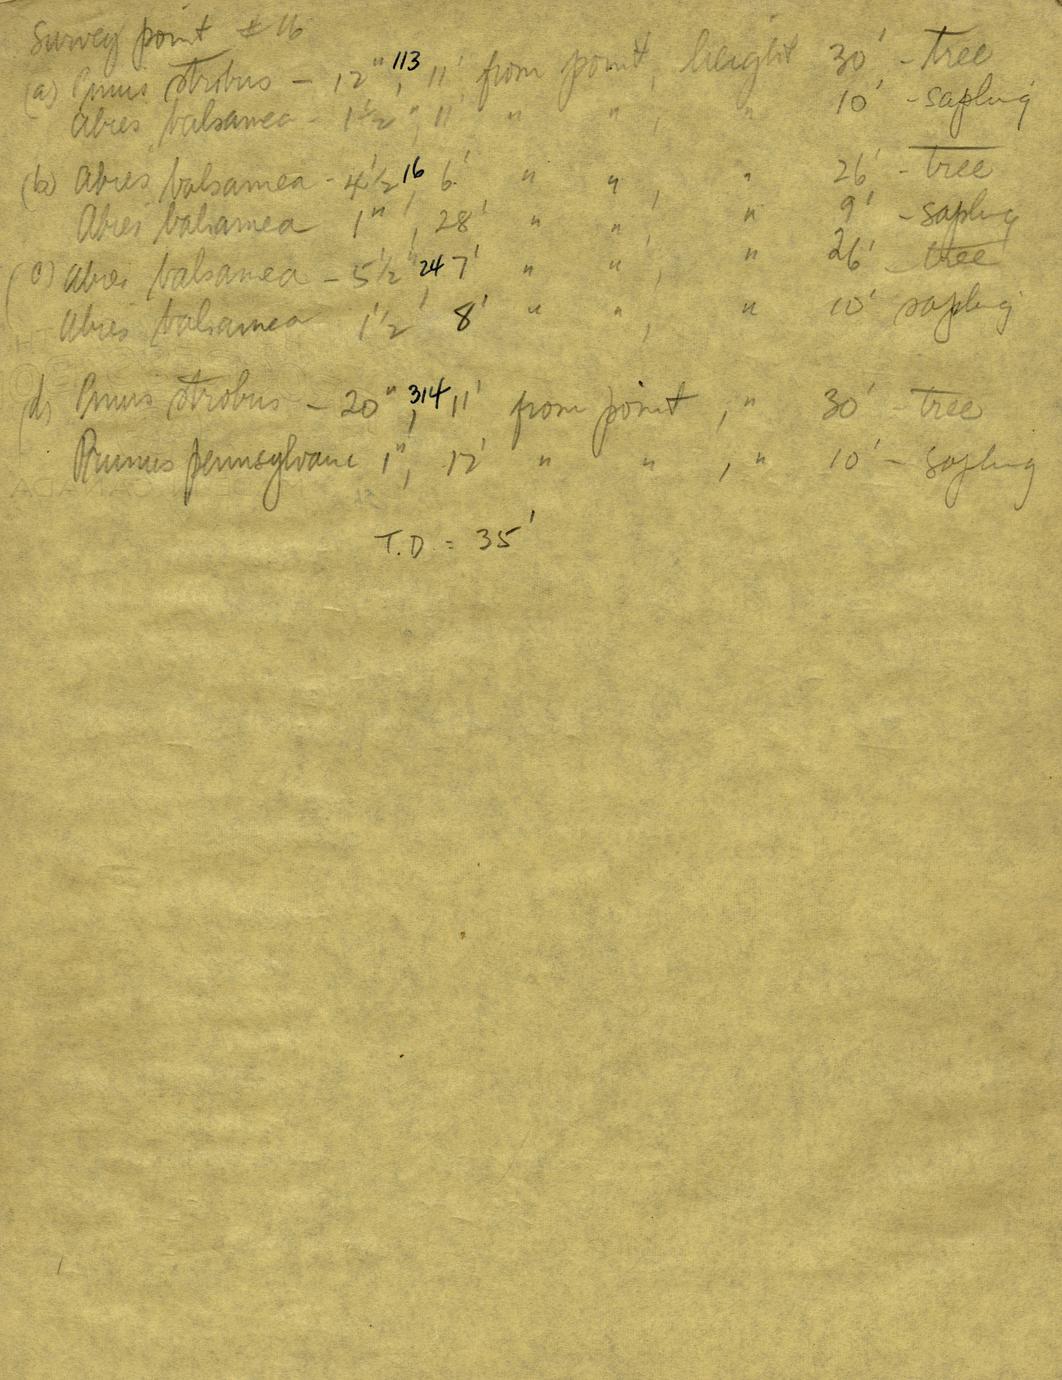 Survey point #16
(a) Pinus strobus - 12", 113 11' from point, height 30' - tree
Abies balsamea - 1 1/2", 11' " " , " 10' - sapling
(b) Abies balsamea - 4 1/2' 16 6' " " , " 26' - tree
Abies balsamea 1", 28' " " , " 9' - sapling
(c) Abies balsamea - 5 1/2", 24 7' " " , " 26' - tree
Abies balsamea 1 1/2' 8' " " , " 10' sapling
(d) Pinus strobus - 20", 314 11' from point , " 30' - tree
Prunus pennsylvanic 1", 12' " " , " 10' - sapling
T.D = 35'